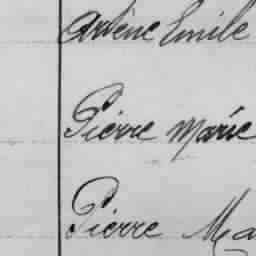 Arsène Emile
Pierre Marie
Pierre Ma